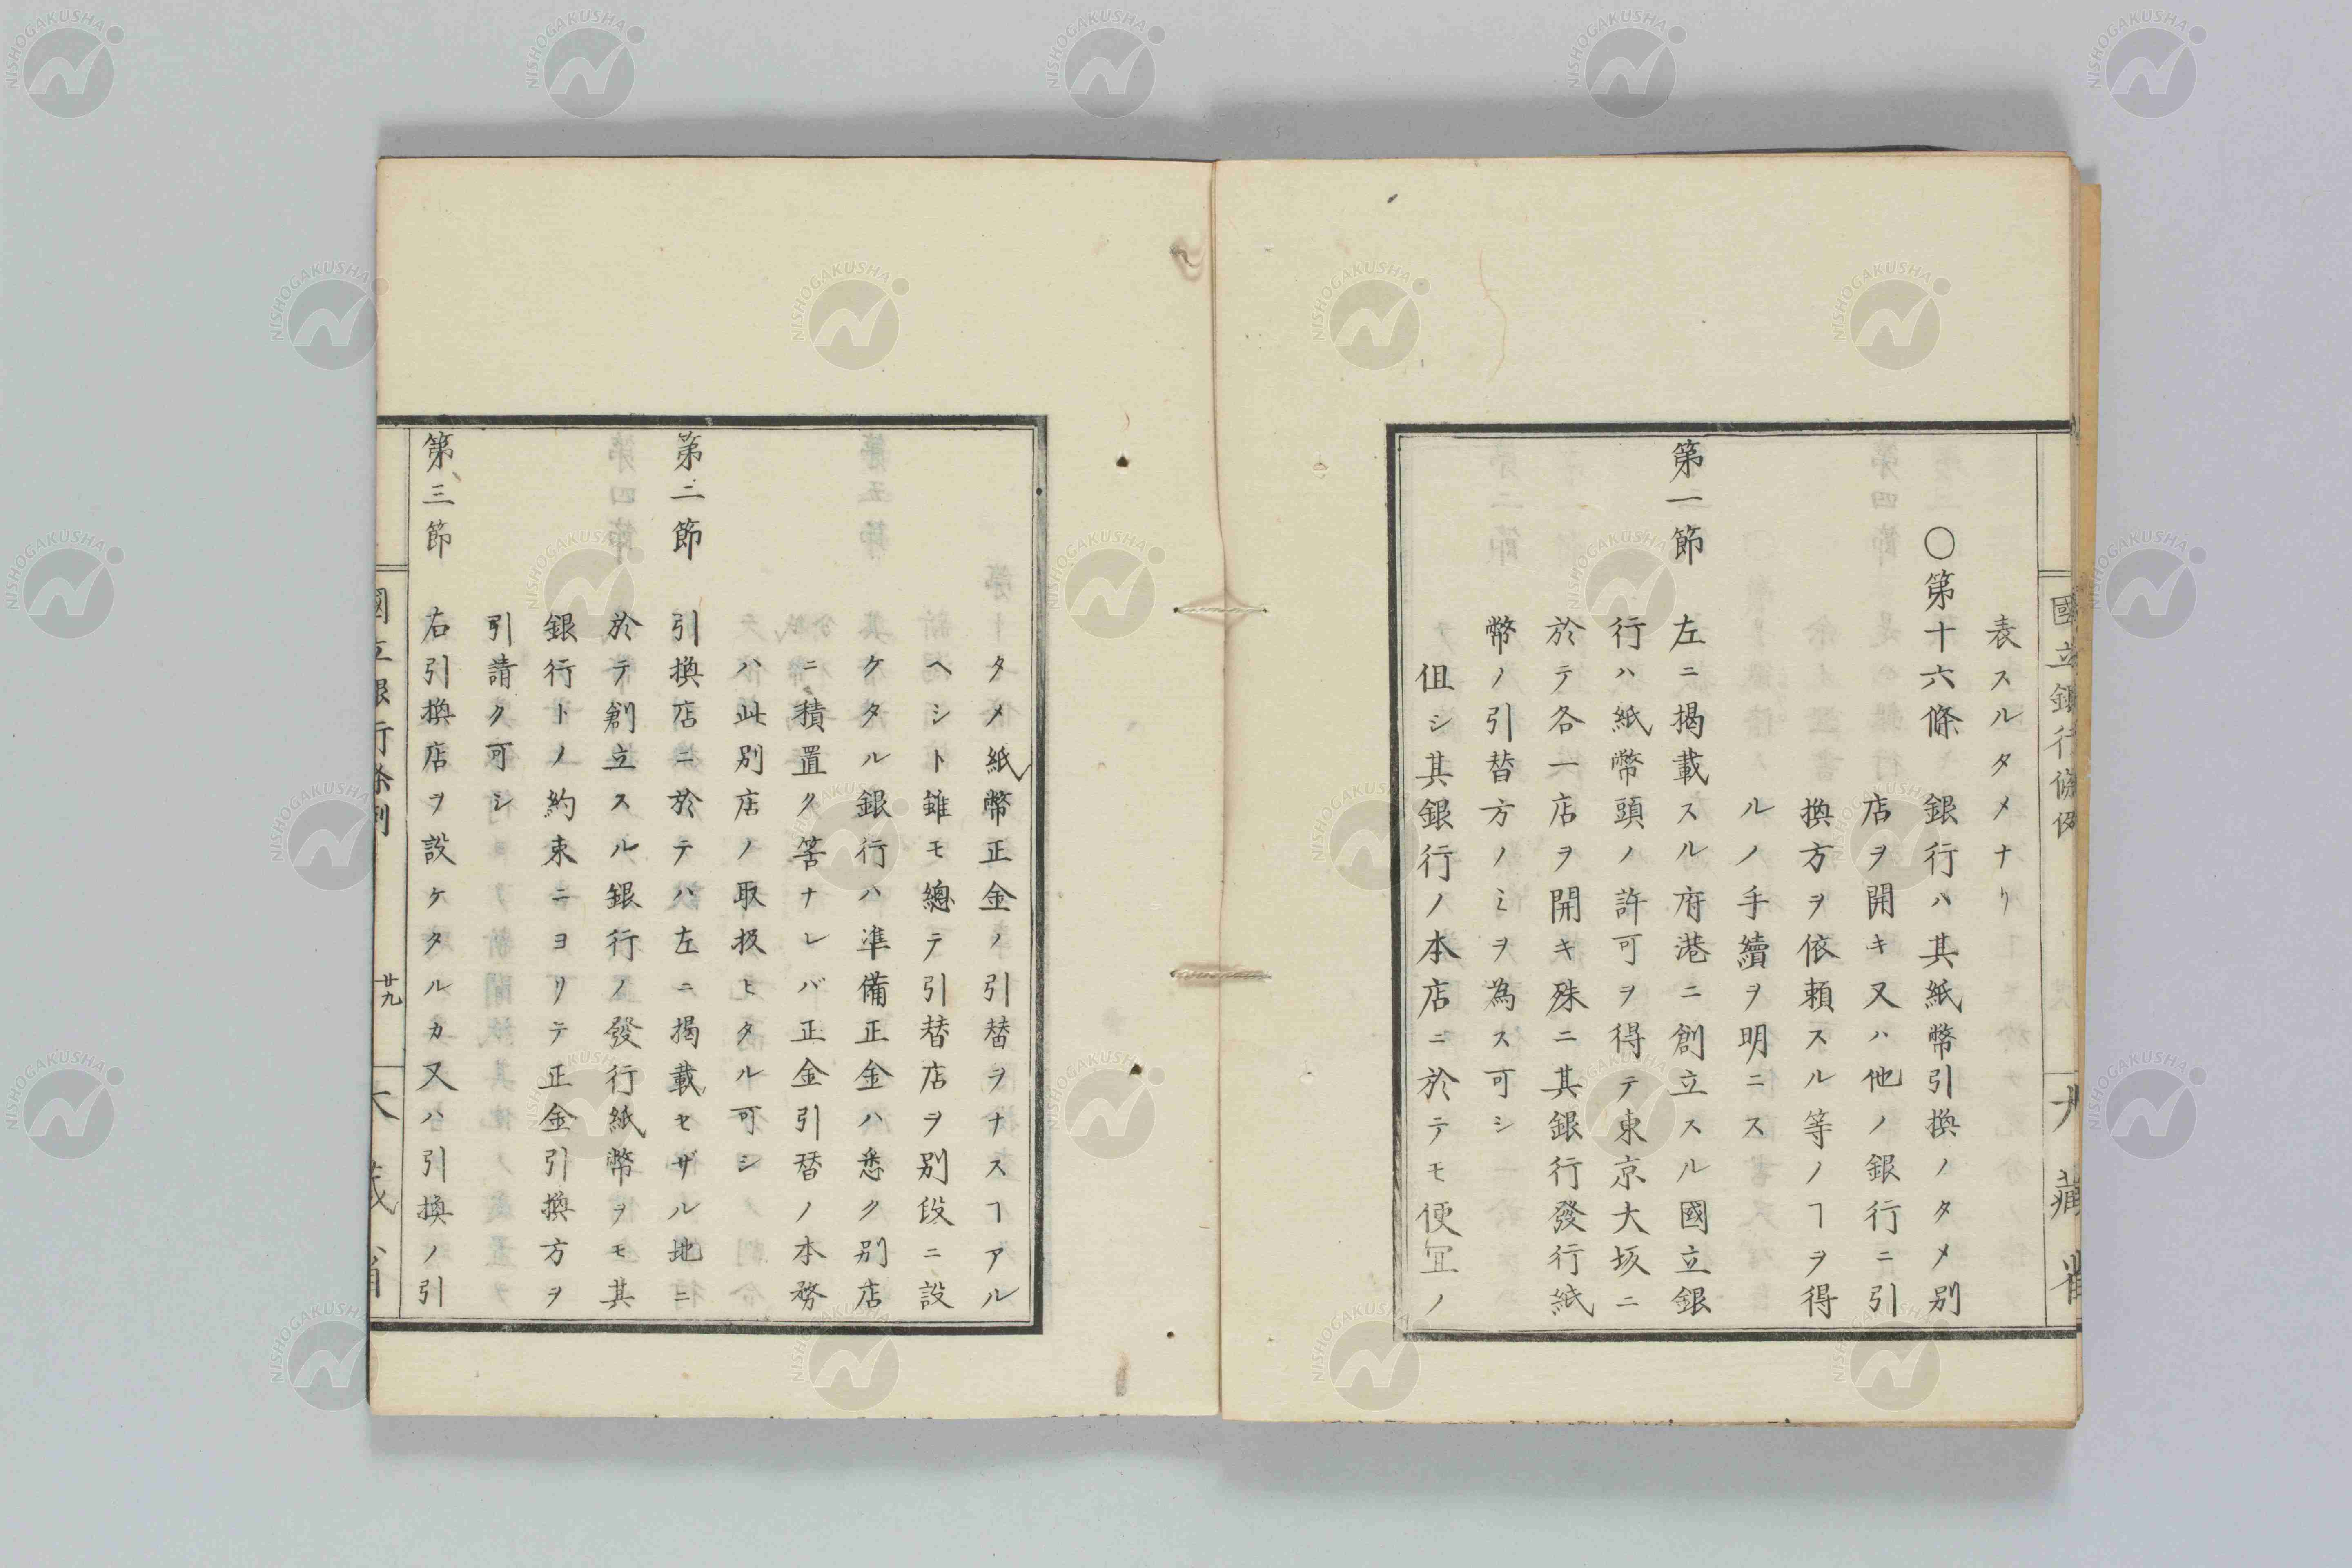 國立銀行條例
大藏省
表スルタメナリ
〇第十六條 銀行ハ其紙幣引換ノタメ別
店ヲ開キ又ハ他ノ銀行ニ引
換方ヲ依頼スル等ノヿヲ得
ルノ手續ヲ明ニス
第一節 左ニ揭載スル府港ニ創立スル國立銀
行ハ紙幣頭ノ許可ヲ得テ東京大坂ニ
於テ各一店ヲ開キ殊ニ其銀行發行紙
幣ノ引替方ノミヲ為ス可シ
伹シ其銀行ノ本店ニ於テモ便冝ノ
タメ紙幣正金ノ引替ヲナスヿアル
ヘシト雖モ總テ引替店ヲ別段ニ設
ケタル銀行ハ準備正金ハ悉ク別店
ニ積置ク筈ナレバ正金引替ノ本務
ハ此別店ノ取扱ヒタル可シ
第二節 引換店ニ於テハ左ニ揭載セザル地ニ
於テ創立スル銀行ノ發行紙幣ヲモ其
銀行トノ約束ニヨリテ正金引換方ヲ
引請ク可シ
第三節 右引換店ヲ設ケタルカ又ハ引換ノ引
國立銀行條例
廿九
大藏省
NISHOGAKUSHA